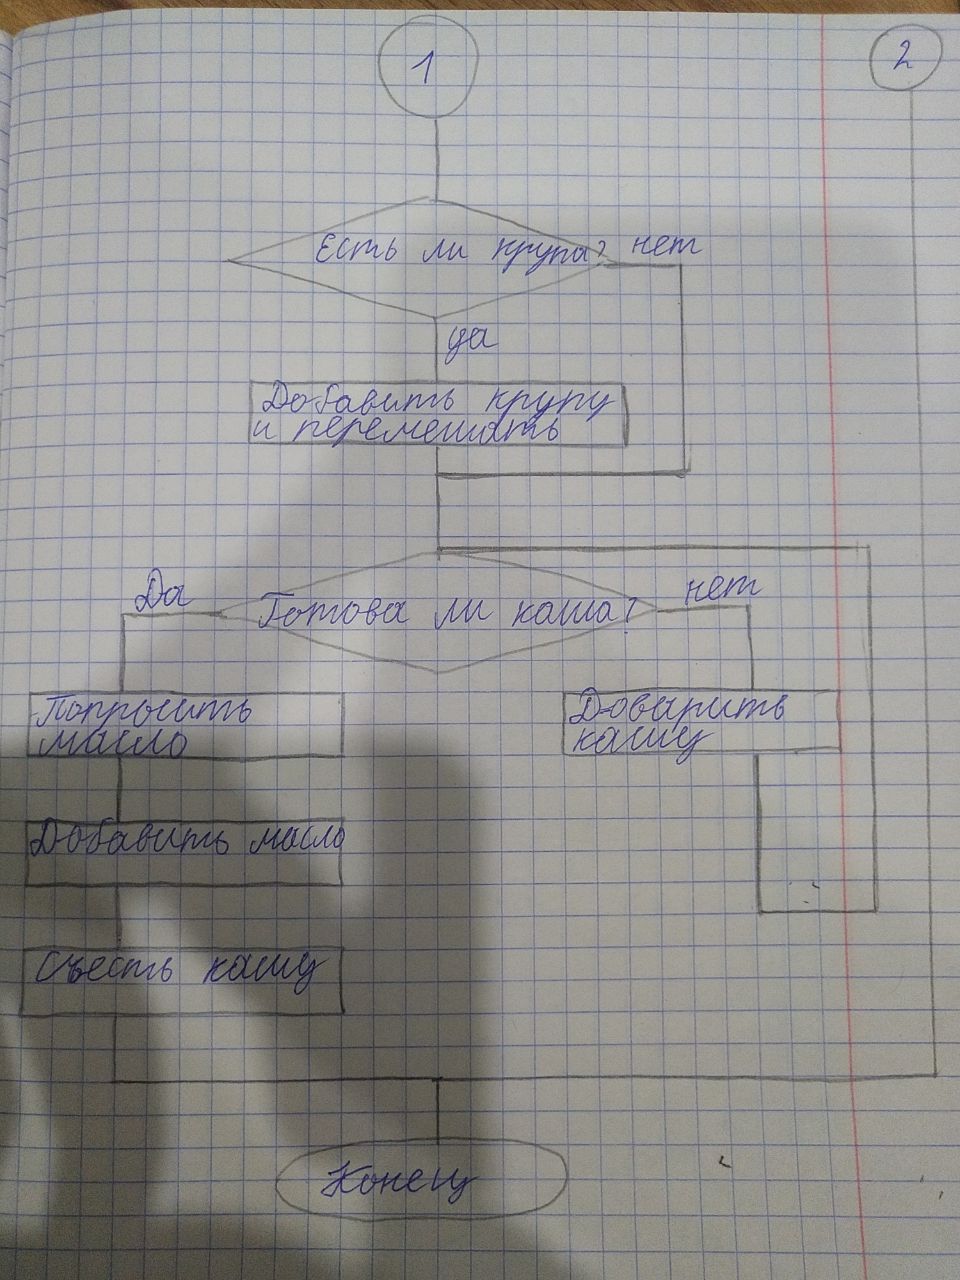 1
2
Есть ли крупа?
нет
да
Добавить крупу
и перемешать
Да
Готова ли каша?
нет
Попросить
масло
Доварить
кашу
Добавить масло
Съесть кашу
Конец